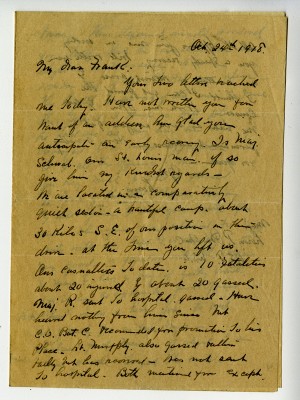 Oct 24th 1918.
My Dear Frank:
Your two letters reached
me today. Have not written you for
want of an address. Am glad you
anticipate an early recovery. Is Maj
Schwab. our St. Louis man. if so
give him my kindest regards -
We are located in a comparatively
quiet sector - a beautiful camp. about
30 Kilos S.E. of our position in the
drive - at the time you left us.
Our casualties to date. is 10 fatalities
about 20 injured & about 20 gassed.
Maj. R. sent to hospital. gassed - Have
heard nothing from him since. Mt
C.O. Bat C. recommended for promotion to his
place - Lt. Murphy also gassed rather
badly but has recovered - was not sent
to hospital. Both mentioned for except.